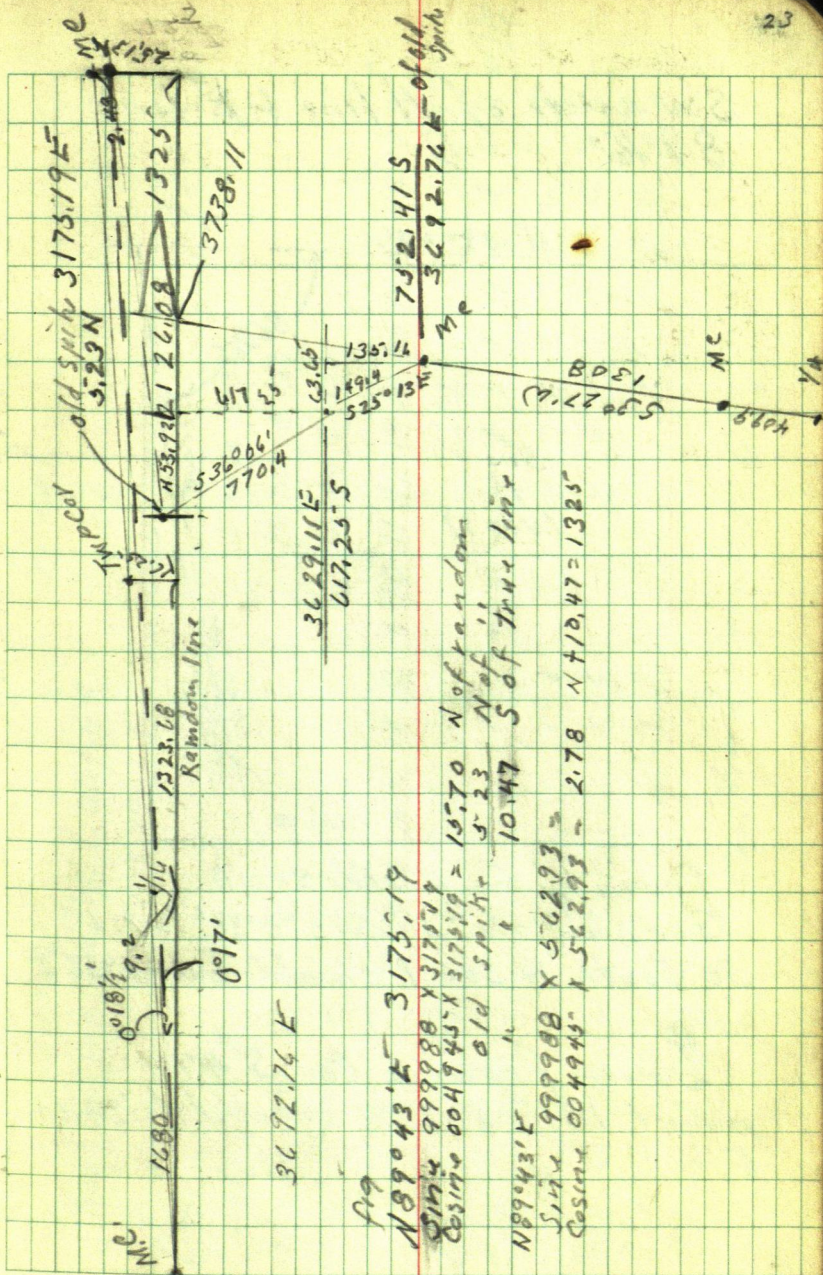 23
MC
25.13
2.48
old spike 3175.19 E
5.23 N
1325
3738.11
Twp Cor
16.25
453.92
2126.08
1323.68
Random line
1/16
0°18 1/2'
9.2
0°17'
1680
M.C.
617.25
63.65
135.16
149.4
S25°13'E
S36°06'
770.4
3629.11 E
617.25 S
752.41 S
3692.76 E of old
spike
MC
S 27' W
1308
MC
4099
1/4
3692.76 E
N89°43' E 3175.19
Sine 999988 X 3175.19
Cosine 004945 X 3175.19 = 15.70 N of random
old spike 5.23 N of "
" " 10.47 S of true line
N89°43' E
Sine 999988 X 562.93 =
Cosine 004945 X 562.93 = 2.78 N + 10.47 = 1325